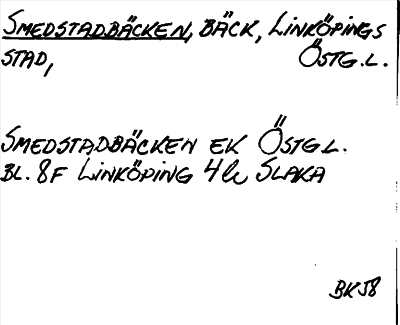 SMEDSTADBÄCKEN, BÄCK, LINKÖPINGS
STAD, ÖSTG.L.
SMEDSTADBÄCKEN EK ÖSTGL.
BL. 8F LINKÖPING 4b SLAKA
BKJ8